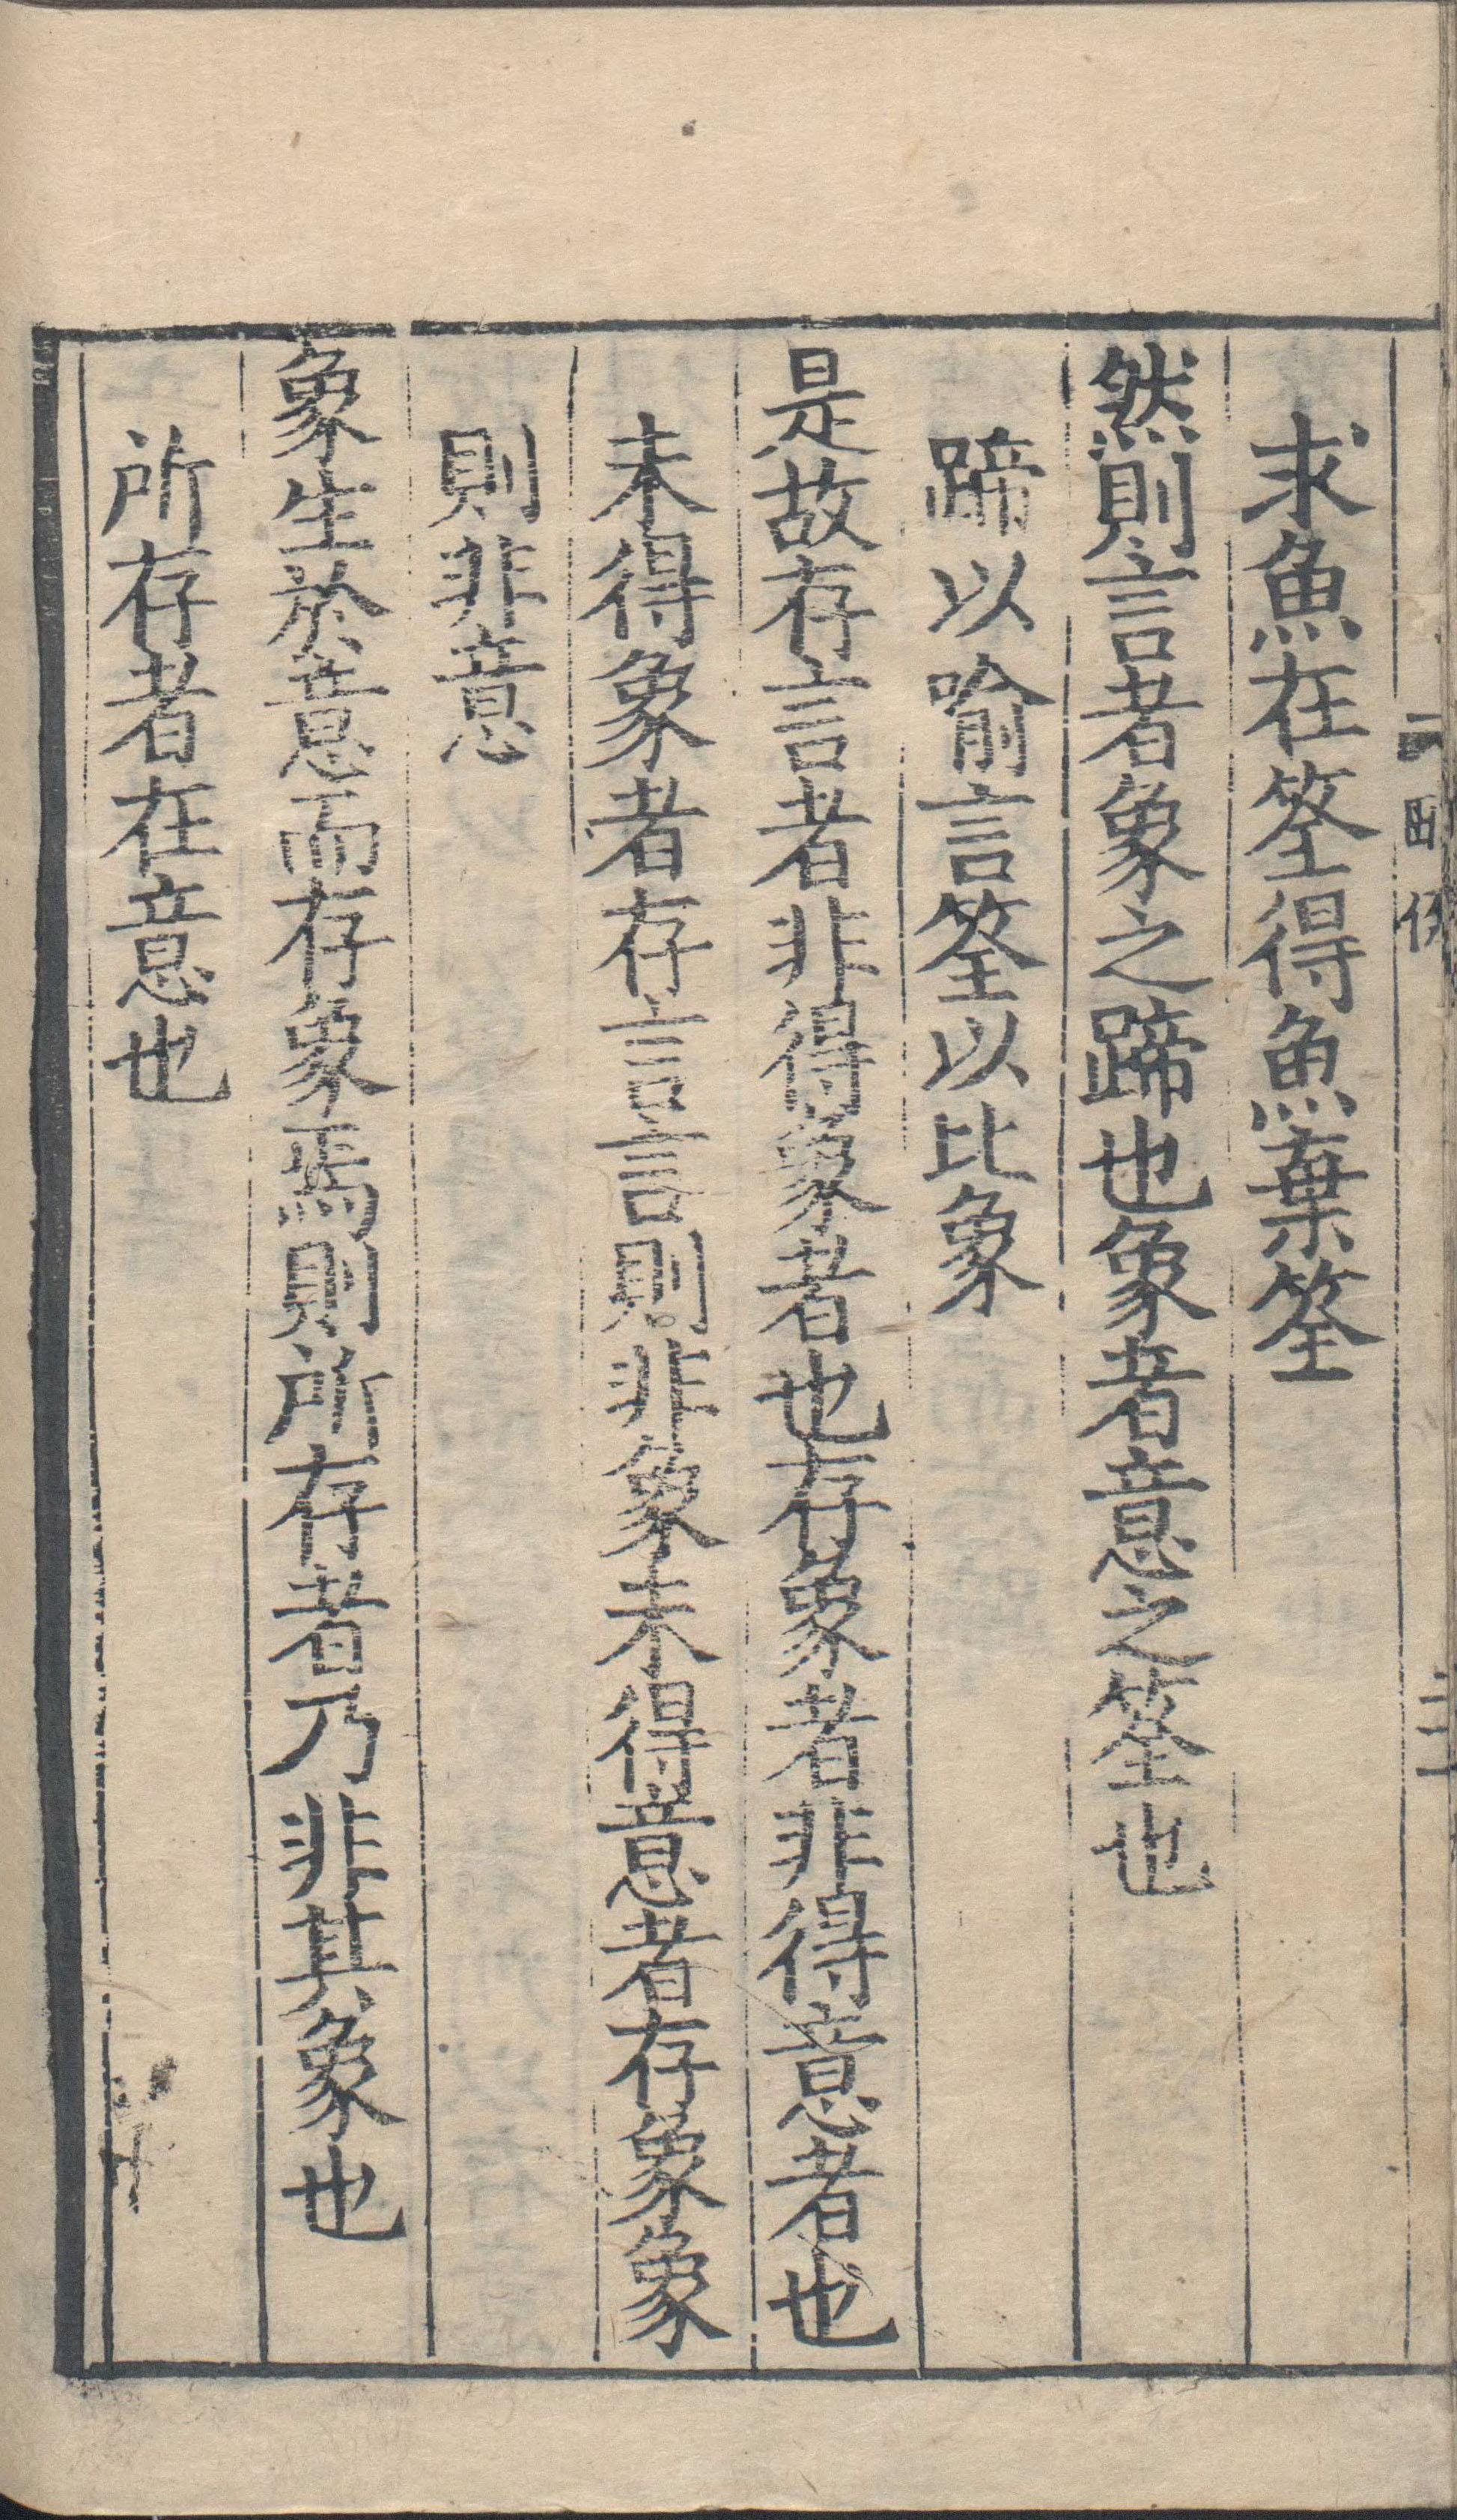 求魚在筌得魚棄筌
然則言者象之蹄也象者意之筌也
蹄以喻言筌以比象
是故存言者非得象者也存象者非得意者也
未得象者存言言則非象未得意者存象象
則非意
象生於意而存象焉則所存者乃非其象也
所存者在意也